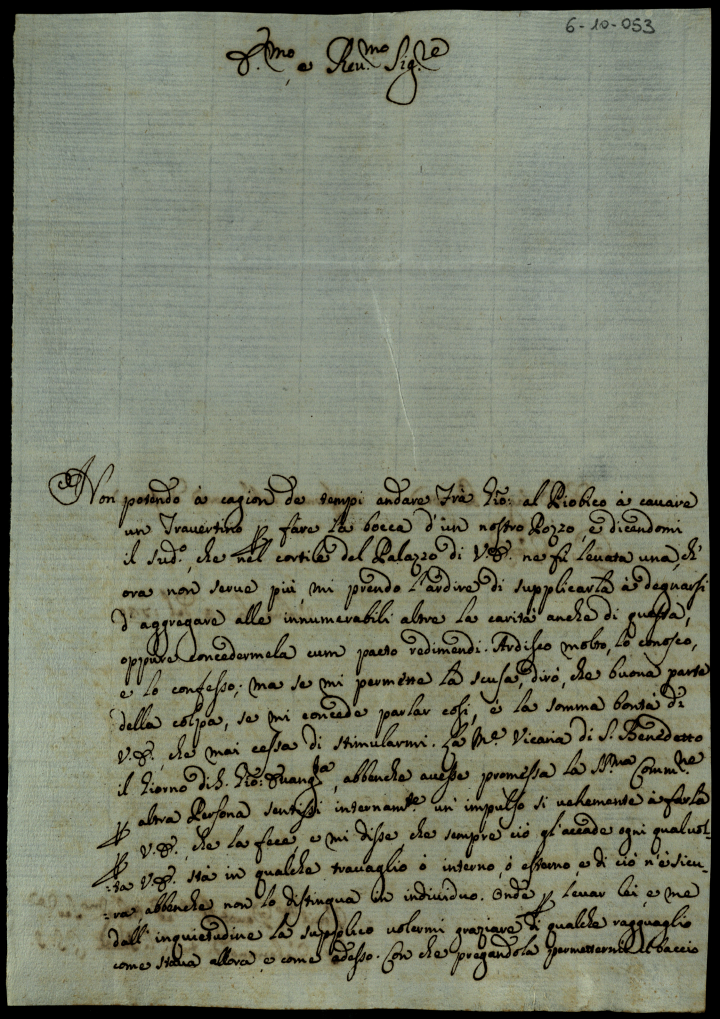 6-10-053
E.mo e Rev.mo Sig.re
Non potendo à cagion de tempi andare Frà Gio: al Piobico à cavare
un Travertino p fare la bocca d'un nostro Pozzo, e dicendomi
il sud.o, che nel cortile del Palazzo di V.E. ne fù levata una, ch'
ora non serve più, mi prendo l'ardire di supplicarla à degnarsi
d'aggregare alle innumerabili altre la carità anche di questa,
oppure concedermela cum pacto redimendi. Ardisco molto, lo conosco,
e lo confesso; ma se mi permette la scusa dirò, che buona parte
della colpa, se mi concede parlar così, è la somma bontà di
V.E., che mai cessa di stimularmi. La M.e Vicaria di S. Benedetto
il giorno di S. Gio: Evang.ta, abbenche avesse promessa la SS.ma Comm.ne
p altra Persona sentissi internam.te un'impulso sì vehemente à farla
p V.E., che la fece, e mi disse che sempre ciò gl'accade ogni qualvol-
:ta V.E. stà in qualche travaglio ò interno, ò esterno, e di ciò n'è sicu-
:ra abbenche non lo distingua in individuo. Onde p levar lei, e me
dall'inquietudine la supplico volermi graziare di qualche ragguaglio
come stava allora, e come adesso. Con che pregandola permettermi il baccio